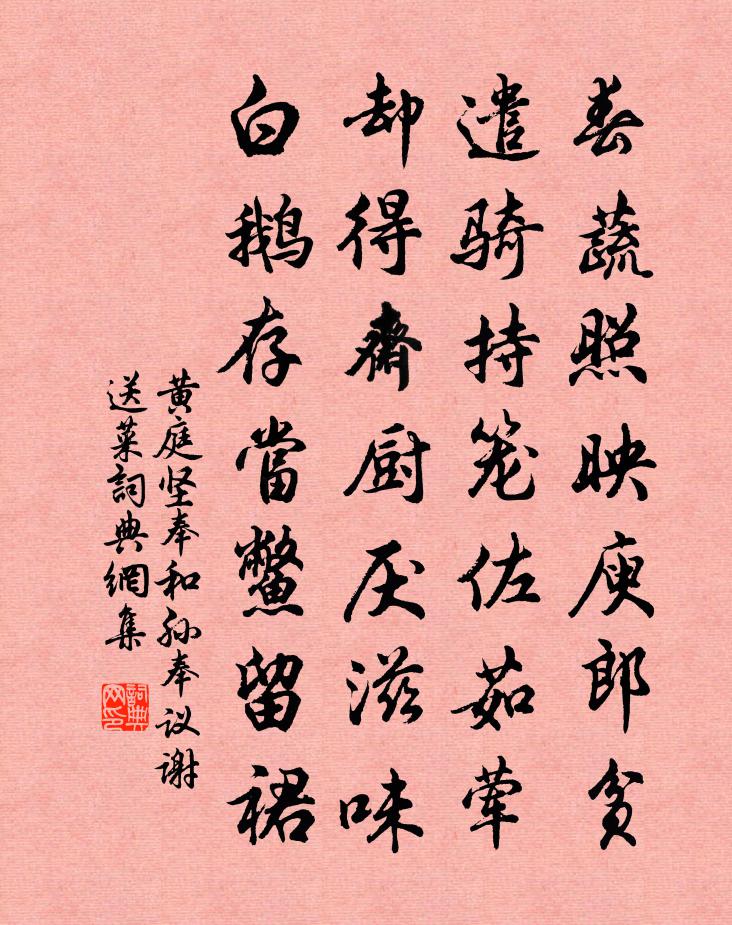 春蔬照映庾郎贫
遣骑持笼佐茹荤
却得斋厨厌滋味
白鹅存掌鳖留裙
黄庭坚奉和孙奉议谢
送菜詞典網集
詞典
网印